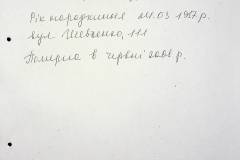 Рік народження 21.03 1927 р.
вул Шевченко, 111
Померла в червні 2008 р.